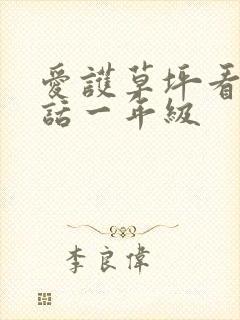 愛護草坪看
話一年級
李良偉